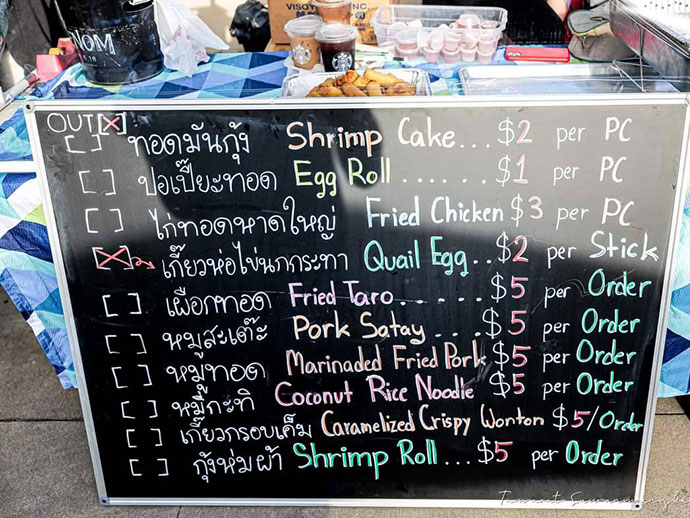 OUT[X]
[ ] ทอดมันกุ้ง Shrimp Cake... $2 per PC
[ ] ปอเปี๊ยะทอด Egg Roll ....... $1 per PC
[ ] ไก่ทอดหาดใหญ่ Fried Chicken $3 per PC
[X] เกี๊ยวห่อไข่นกกระทา Quail Egg.. $2 per Stick
[ ] เผือกทอด Fried Taro...... $5 per Order
[ ] หมูสะเต๊ะ Pork Satay .... $5 per Order
[ ] หมูทอด Marinaded Fried Pork $5 per Order
[ ] หมี่กะทิ Coconut Rice Noodle $5 per Order
[ ] เกี๊ยวกรอบเค็ม Caramelized Crispy Wonton $5/Order
[ ] กุ้งห่มผ้า Shrimp Roll... $5 per Order
NOM